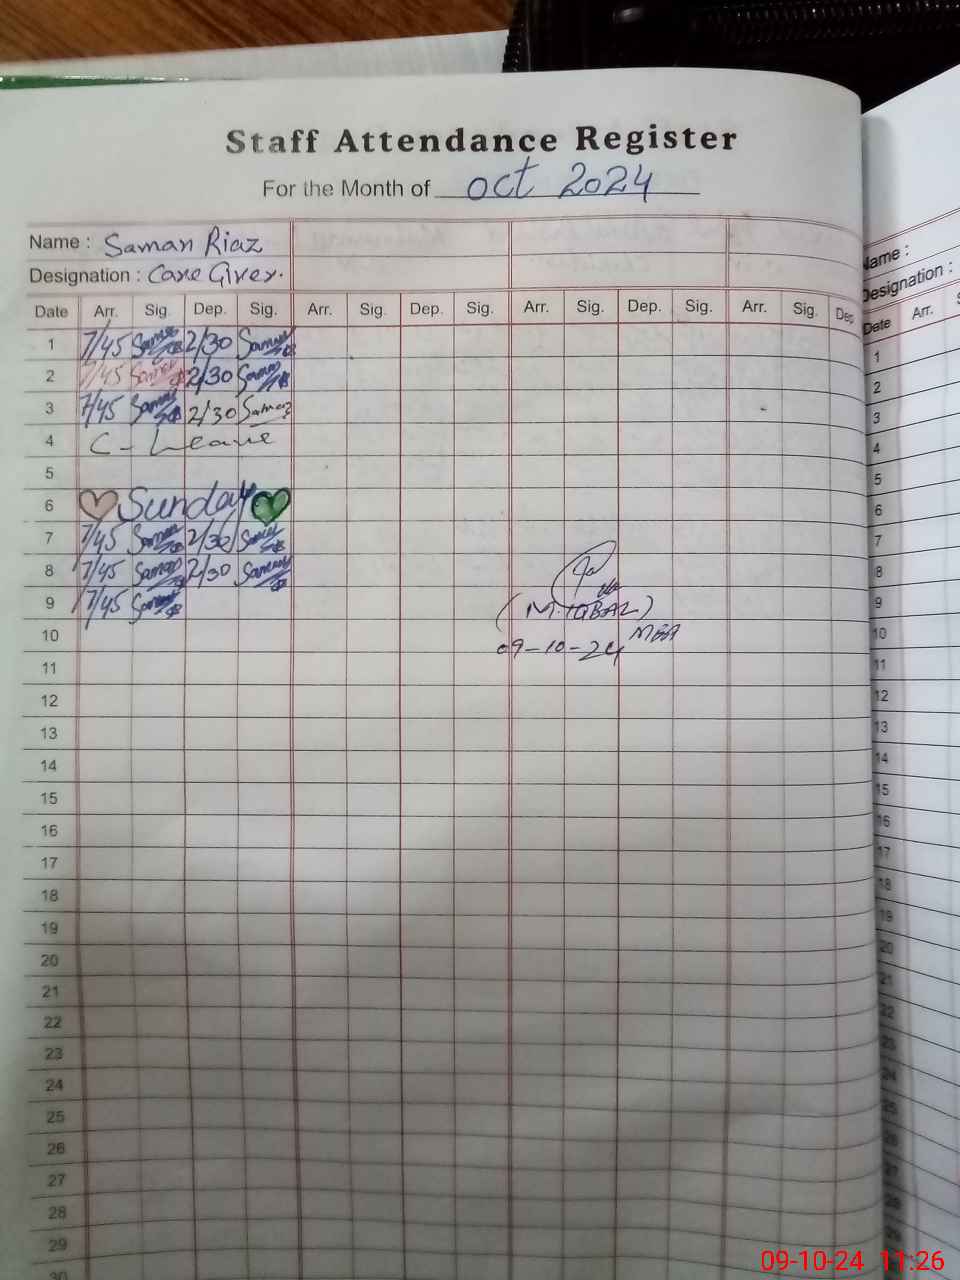 Staff Attendance Register
For the Month of Oct 2024
Name : Saman Riaz
Designation : Care Giver.
Date Arr. Sig. Dep. Sig. Arr. Sig. Dep. Sig. Arr. Sig. Dep. Sig. Arr. Sig. Dep
1 7/45 Saman 2/30 Saman
2 7/45 Saman 2/30 Saman
3 7/45 Saman 2/30 Saman
4 C - Leave
5
6 Sunday
7 7/45 Saman 2/30 Saman
8 7/45 Saman 2/30 Saman
9 7/45 Saman
(M. IQBAL)
10
MEA
09-10-24
11
12
13
14
15
16
17
18
19
20
21
22
23
24
25
26
27
28
29
30
Name :
Designation :
Date Arr.
1
2
3
4
5
6
7
8
9
10
11
12
13
14
15
16
17
18
19
20
21
22
23
24
25
26
27
28
29
09-10-24 11:26